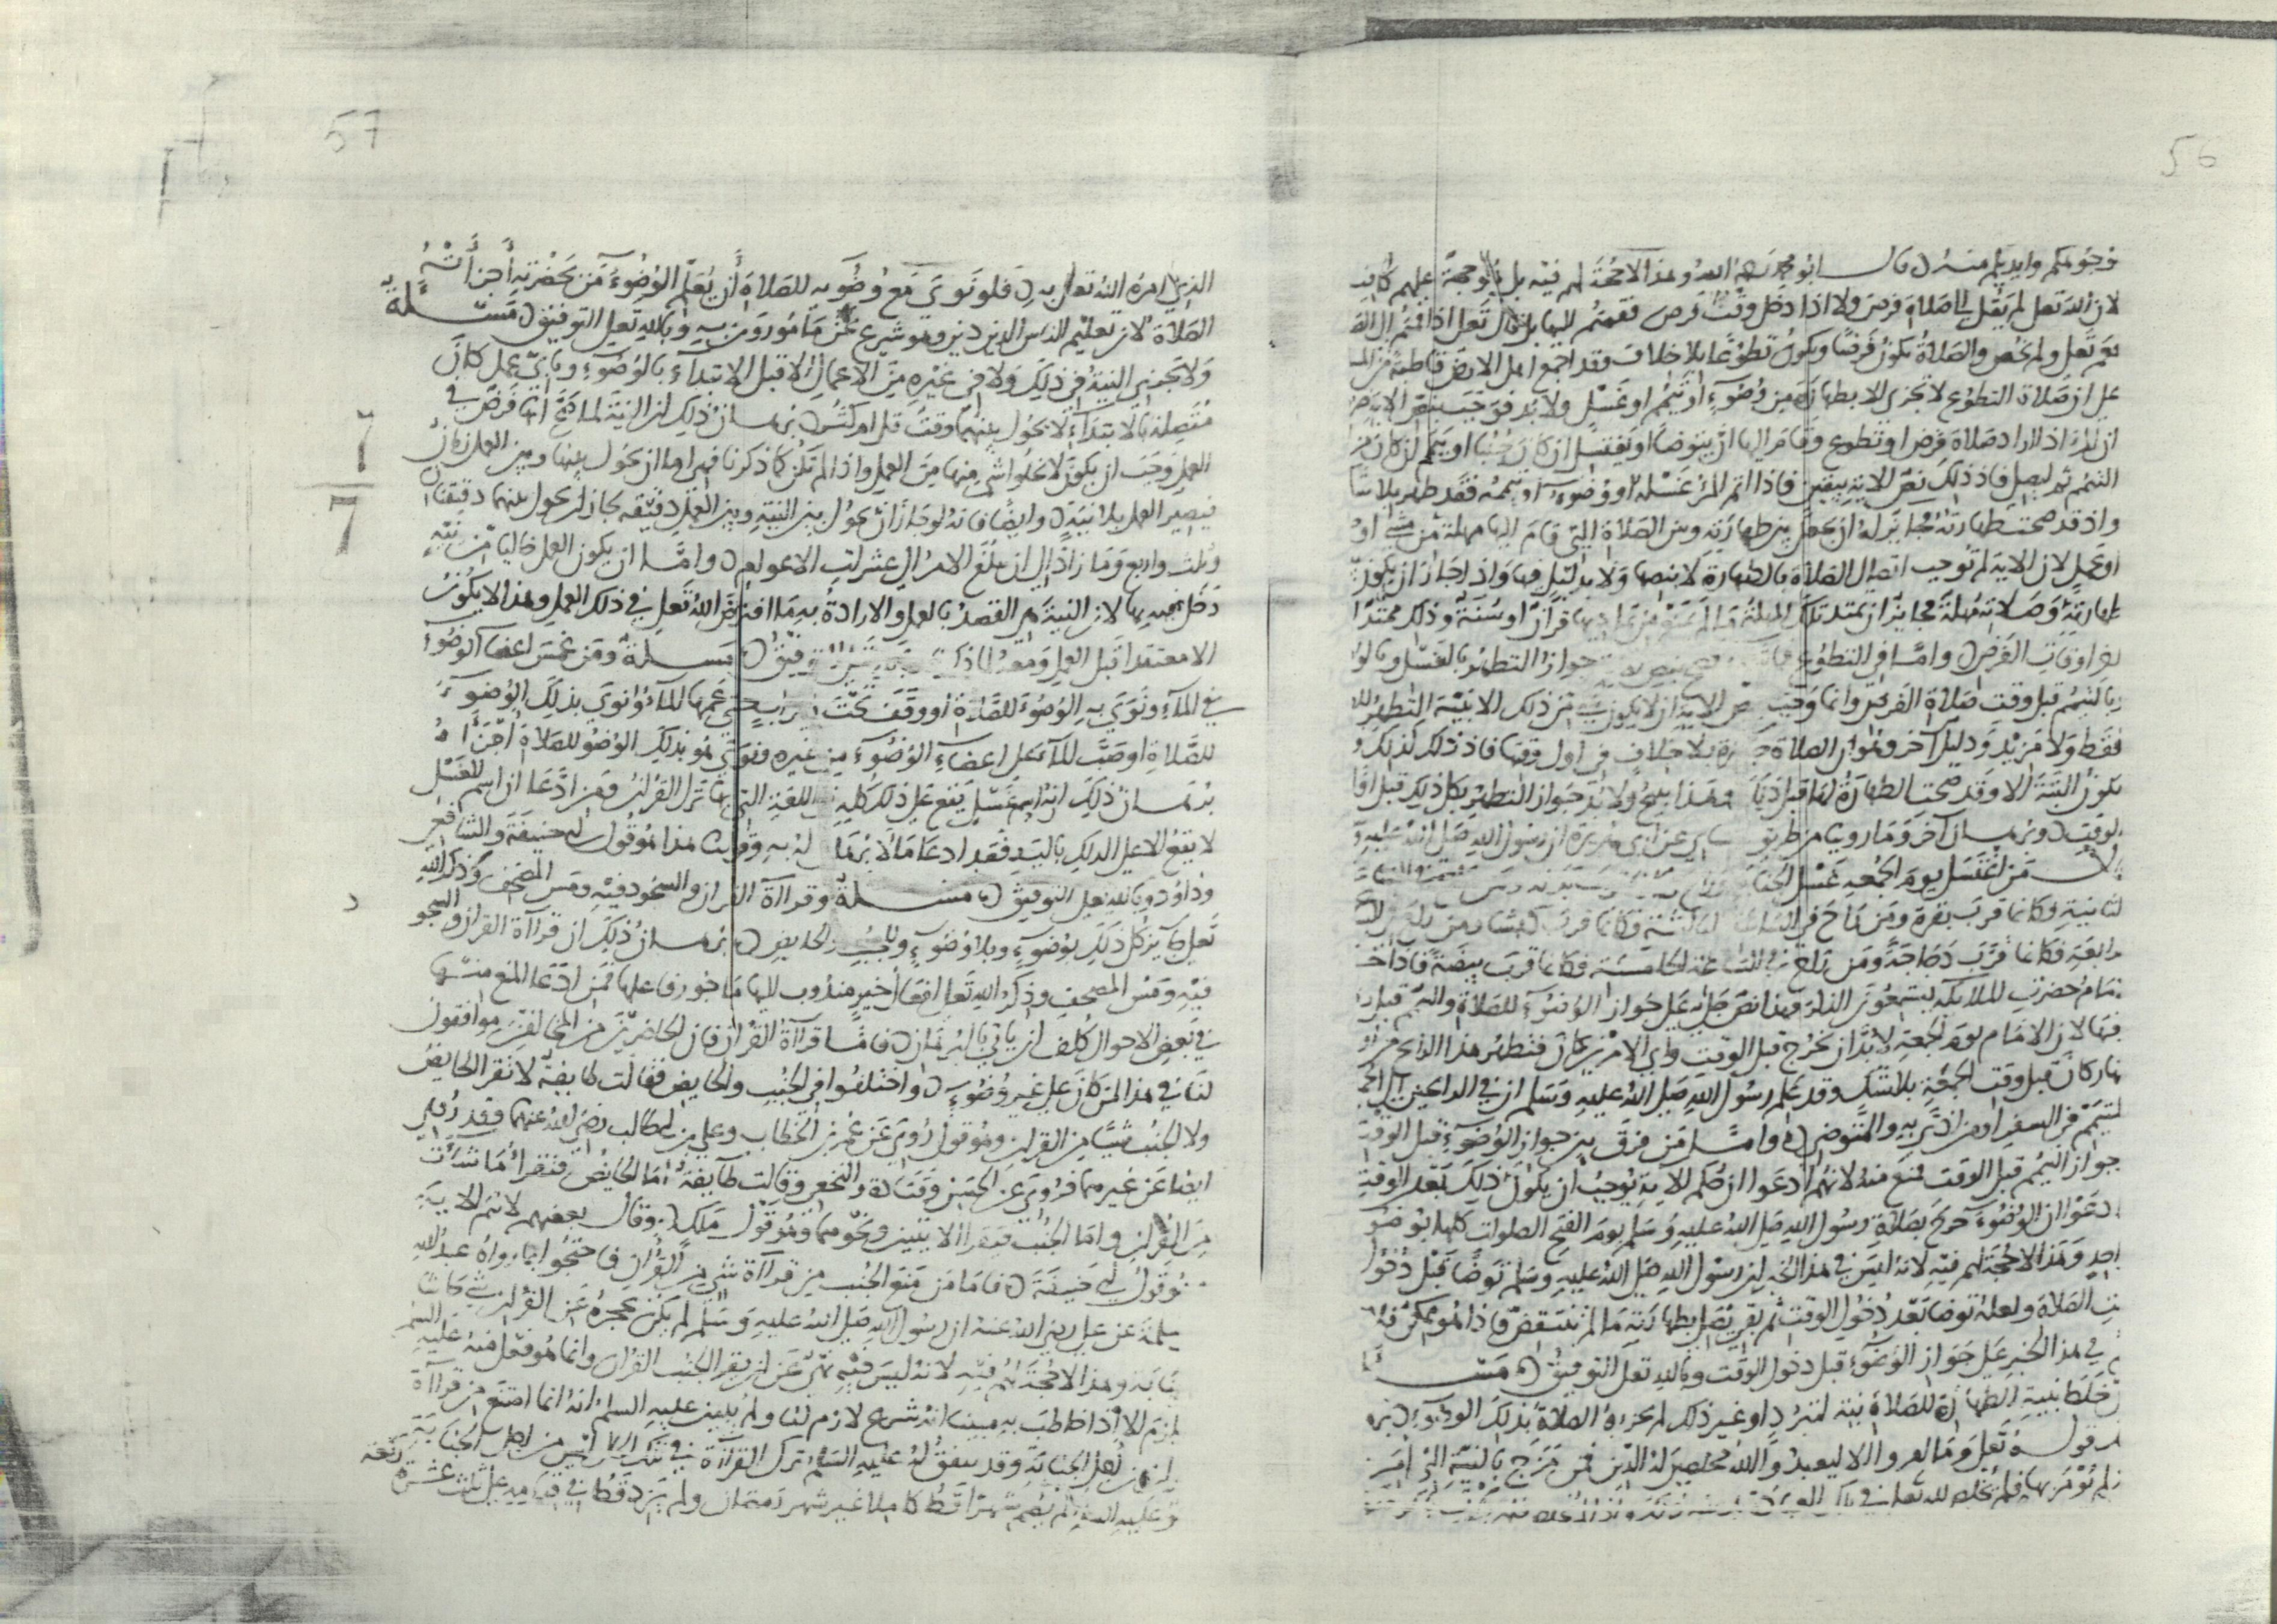 56
وجوهكم وايديكم منه قال ابو محمد رحمه الله وهذا لا حجة لهم فيه بل هو حجة عليهم كافية
لان الله تعلى لم يقل الى صلاة فرض ولا اذا دخل وقت فرض فقمتم اليها بل قال تعلى اذا قمتم الى الصـ
فعم تعلى ولم يخص والصلاة تكون فرضا وتكون تطوعا بلا خلاف وقد اجمع اهل الارض قاطبة من المـ
على ان صلاة التطوع لا تجزي الا بطهارة من وضوء او تيمم او غسل ولا بد فوجب بنص الاية ضر
ان المرء اذا اراد صلاة فرض او تطوع وقام اليها ان يتوضا او يغتسل ان كان جنبا او يتيمم ان كان من
التيمم ثم ليصل فاذ ذلك نص الاية بيقين فاذا اتم المرء غسله او وضوءه او تيممه فقد طهر بلا شك
واذ قد صحت طهارته فجايز له ان يجعل بين طهارته وبين الصلاة التي قام اليها مهلة من مشي او
او عمل لان الاية لم توجب اتصال الصلاة بالطهارة لا بنصها ولا بدليل فيها واذا جاز ان يكون
طهارته وصلاته مهلة فجايز ان تمتد تلك المهلة ما لم يمنع من تماديها قرآن او سنة وذلك ممتدا
اوقات الفرض واما في التطوع جواز التطهر بالغسل وبالو
وبالتيمم قبل وقت صلاة الفرض وانما وجب الاية ان لا يكون شيء من ذلك الا بنية التطهر للـ
فقط ولا مزيد ودليل آخر وهو ان الصلاة جايزة بلا خلاف في اول وقتها فاذ ذلك كذلك
يكون البتة الا وقد صحت الطهارة لها قبل ذلك وهذا ينتج ولا بد جواز التطهر بكل ذلك قبل او
لوقت وبرهان آخر وما رويناه من طريق عن ابي هريرة ان رسول الله صلى الله عليه و
من اغتسل يوم الجمعة غسل الجنابة
الثانية فكانما قرب بقرة ومن راح في الساعة الثالثة فكانما قرب كبشا ومن راح في
رابعة فكانما قرب دجاجة ومن راح في الساعة الخامسة فكانما قرب بيضة فاذا خـ
امام حضرت الملايكة يستمعون الذكر فهذا نص جلي على جواز الوضوء للصلاة والتيمم قبل
فيها لان الامام يوم الجمعة لا بد ان يخرج قبل الوقت واي الامرين كان فتطهر هذا الرايح من او
نهار كان قبل وقت الجمعة بلا شك وقد علم رسول الله صلى الله عليه وسلم ان في الرايحين الى الجمـ
لتيمم في السفر او من اذى به والمتوضي واما من فرق بين جواز الوضوء قبل الوقت
جواز التيمم قبل الوقت فمنع منه لانهم ادعوا ان حكم الاية يوجب ان يكون ذلك بعد الوقت
ادعوا ان الوضوء خرج بصلاة رسول الله صلى الله عليه وسلم يوم الفتح الصلوات كلها بوضو
احد وهذا لا حجة لهم فيه لانه ليس في هذا الخبر ان رسول الله صلى الله عليه وسلم توضا قبل دخول
ت الصلاة ولعله توضا بعد دخول الوقت ثم بقي يصلي بطهارته ما لم تنتقض فاذا هو ممكن فلا
في هذا الخبر على جواز الوضوء قبل دخول الوقت وبالله تعلى التوفيق مسـ
خلط بنية الطهارة للصلاة نية لتبرد او غير ذلك لم تجزه الصلاة بذلك الوضوء بر
قول الله تعلى وما امروا الا ليعبدوا الله مخلصين له الدين فمن مزج بالنية التي امر
لم يؤمر بها فلم يخلص لله تعلى
57
الذي امره الله تعلى به فلو نوى مع وضوبه للصلاة ان يعلم الوضوء من بحضرته اجزاته
الصلاة لان تعليم الناس الدين دين وهو شرع نحن مامورون به وبالله تعلى التوفيق مسـلة
ولا تجزي النية في ذلك ولا في غيره من الاعمال الا قبل الابتداء بالوضوء وباي عمل كان
متصلة بالابتداء لا يحول بينهما وقت قل ام كثر برهان ذلك ان النية لما صح انها فرض في
العمل وجب ان يكون لا يخلوا شي منها من العمل واذا لم تكن كما ذكرنا فهي اما ان يحول بينها وبين العمل زمان
فيصير العمل بلا نية وايضا فانه لو جاز ان يحول بين النية وبين العمل دقيقة لجاز ان يحول بينهما دقيقتان
وثلث واربع وما زاد الى ان يبلغ الامر الى عشرات الاعوام واما ان يكون العمل خاليا من نية
دخل فيه بها لان النية هي القصد بالعمل والارادة به ما افترض الله تعلى في ذلك العمل وهذا لا يكون
الا معتقدا قبل العمل ومعه كما ذكرنا وبالله تعلى التوفيق مسلة ومن غمس اعضاء الوضوء
في الماء ونوى به الوضوء للصلاة او وقف تحت ميزاب حتى عمها الماء ونوى بذلك الوضوء
للصلاة او صب الماء على اعضاء الوضوء من غيره ونوى هو بذلك الوضوء للصلاة اجزاه
برهان ذلك انه اسم غسل يقع على ذلك كله في اللغة التي بها نزل القرآن ومن ادعا ان اسم الغسل
لا يقع الا على الدلك باليد فقد ادعا ما لا برهان له به وقولنا هذا هو قول ابي حنيفة والشافعي
وداود وبالله تعلى التوفيق مسـلة وقراءة القران والسجود فيه ومس المصحف وذكر الله
تعلى جايز كل ذلك بوضوء وبلا وضوء وللجنب والحايض برهان ذلك ان قراءة القران والسجو
فيه ومس المصحف وذكر الله تعلى افعال خير مندوب اليها ماجور فاعلها فمن ادعا المنع منها
في بعض الاحوال كلف ان ياتي بالبرهان فاما قراءة القرآن فان الحاضرين من المخالفين موافقون
لنا في هذا لمن كان على غير وضوء واختلفوا في الجنب والحايض فقالت طايفة لا تقرا الحايض
ولا الجنب شيئا من القران وهو قول روي عن عمر بن الخطاب وعلي بن ابي طالب رضي الله عنهما وقد روي
ايضا عن غيرهما فروي عن الحسن وقتادة والنخعي وقالت طايفة اما الحايض فتقرا ما شاءت
من القران واما الجنب فيقرا الايتين ونحوهما وهو قول ملك وقال بعضهم لا يتم الاية
وهو قول ابي حنيفة فاما من منع الجنب من قراءة شي من القران فاحتجوا بما رواه عبد الله
بن سلمة عن علي رضي الله عنه ان رسول الله صلى الله عليه وسلم لم يكن يحجزه عن القران شي حاشا
الجنابة وهذا لا حجة لهم فيه لانه ليس فيه نهي عن ان يقرا الجنب القران وانما هو فعل منه عليه السلم
لا يلزم الا اذا خاطب به مبينا انه شرع لازم لنا ولم يبين عليه السلم انه انما امتنع من قراءة
القران من اجل الجنابة وقد يتفق له عليه السلم ترك القراءة في تلك الحال ليس من اجل الجنابة
وهو عليه السلم لم يصم شهرا قط كاملا غير شهر رمضان ولم يزد قط في قيامه على ثلث عشرة ركعة